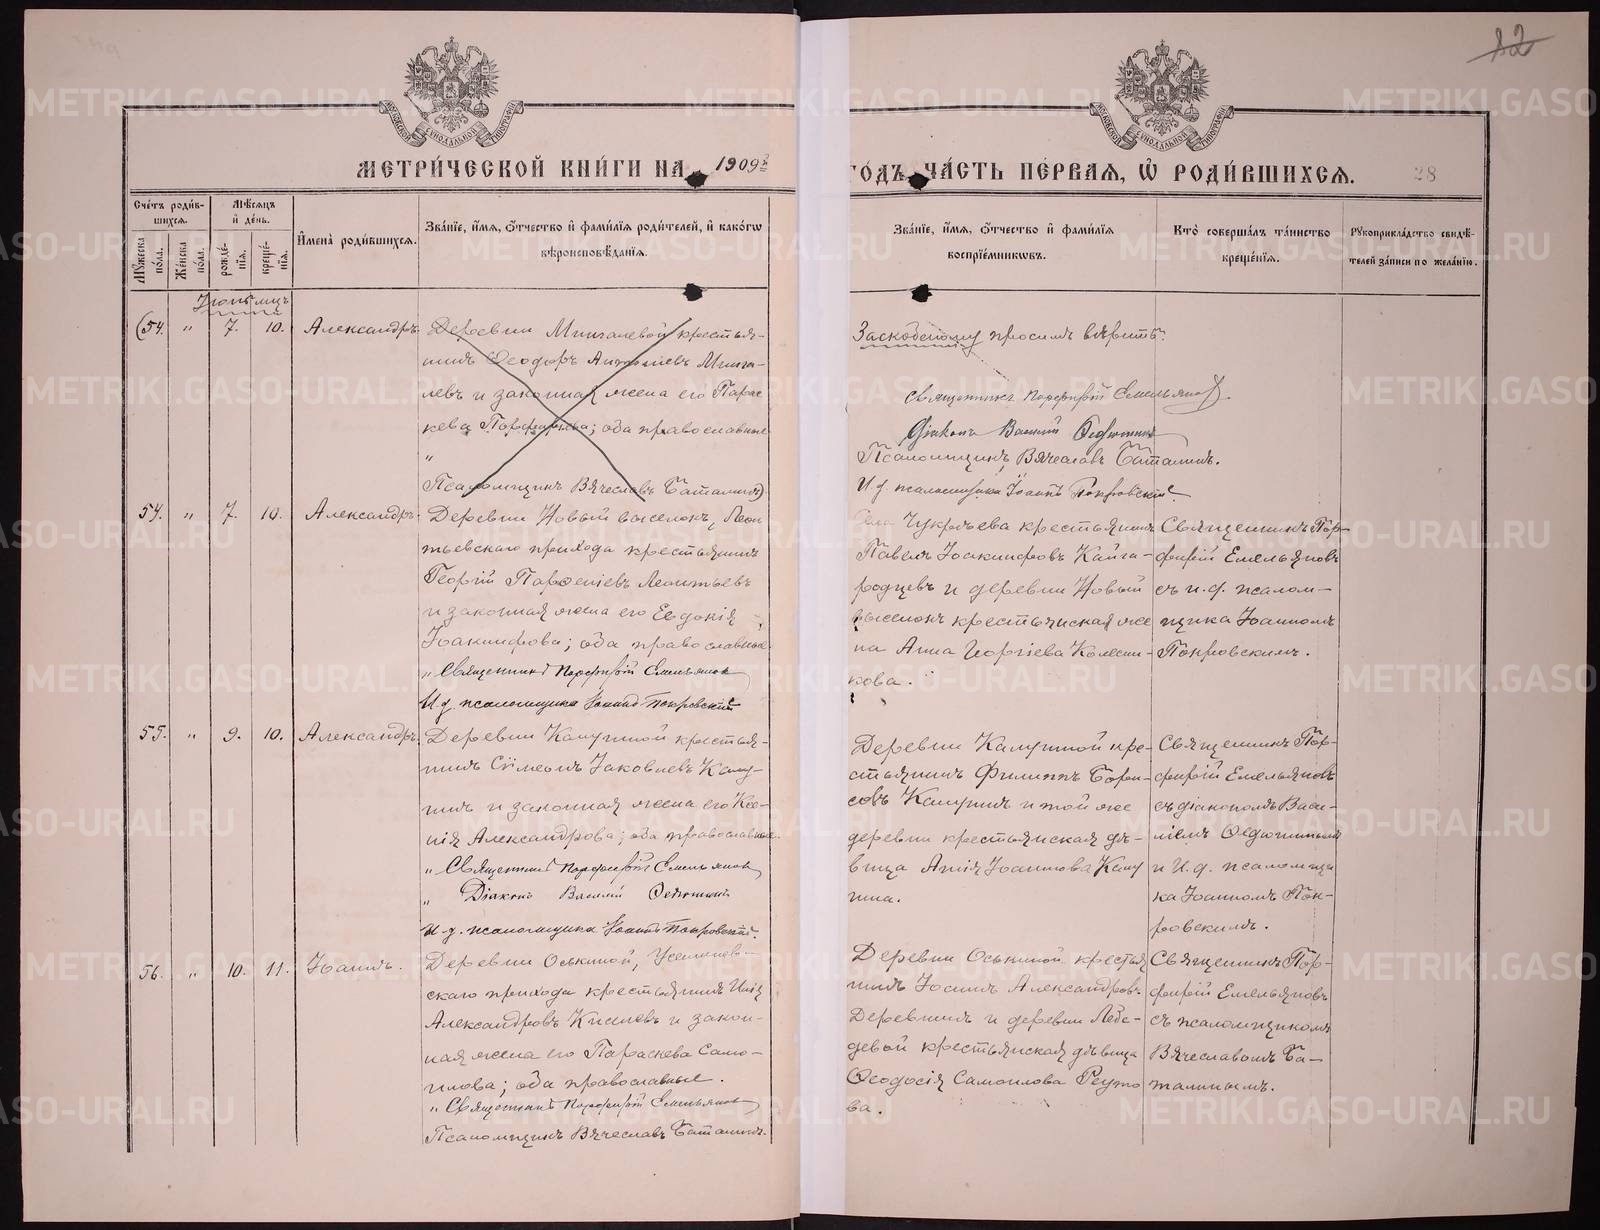 МЕТРИ́ЧЕСКОЙ КНИ́ГИ НА 1909 г.
ГО́ДЪ, ЧА́СТЬ ПЕ́РВАЯ, Ѡ҆ РОДИ́ВШИХСЯ.
28
12
Сче́тъ роди́вшихся.
Му́жеска по́ла.
Же́нска по́ла.
Мѣ́сяцъ и҆ де́нь.
рожде́нїя.
креще́нїя.
И҆мена̀ роди́вшихся.
Зва́нїе, и҆́мя, ѻ҆́тчество и҆ фами́лїя роди́телей, и҆ како́гѡ
вѣроисповѣ́данїя.
Зва́нїе, и҆́мя, ѻ҆́тчество и҆ фами́лїя
воспрїе́мниковъ.
Кто̀ соверша́лъ та́инство
креще́нїя.
Рукоприкла́дство свидѣ́-
телей за́писи по жела́нїю.
(54. " 7. 10. Александръ.
Деревни Мингалевой крестья-
нинъ Ѳеодоръ Минга-
левъ и законная жена его Парас-
кева; оба православные
"
Псаломщикъ Вячеславъ Баталинъ)
Заскобенному просимъ вѣрить:
Священникъ Порфирій Емельяновъ.
Діаконъ Василій
Псаломщикъ Вячеславъ Баталинъ.
И. д. псаломщика Іоаннъ Покровскій.
54. " 7. 10. Александръ.
Деревни Новый выселокъ, Леон-
тьевскаго прихода крестьянинъ
Георгій Парѳеніевъ Леонтьевъ
и законная жена его Евдокія
Іоакимфова; оба православные.
" Священникъ Порфирій Емельяновъ
И. д. псаломщика Іоаннъ Покровскій
Села Чукреева крестьянинъ
Павелъ Іоакимфовъ Кайга-
родцевъ и деревни Новый
выселокъ крестьянская же-
на Анна Георгіева Колесни-
кова.
Священникъ Пор-
фирій Емельяновъ
съ и. д. псалом-
щика Іоанномъ
Покровскимъ.
55. " 9. 10. Александръ.
Деревни Калугиной крестья-
нинъ Сѵмеонъ Іаковлевъ Калу-
гинъ и законная жена его Ксе-
нія Александрова; оба православные.
" Священникъ Порфирій Емельяновъ
" Діаконъ Василій
И. д. псаломщика Іоаннъ Покровскій.
Деревни Калугиной кре-
стьянинъ Филиппъ Бори-
совъ Калугинъ и той же
деревни крестьянская дѣ-
вица Анна Іоаннова Калу-
гина.
Священникъ Пор-
фирій Емельяновъ
съ діакономъ Васи-
ліемъ
и И. д. псаломщи-
ка Іоанномъ Пок-
ровскимъ.
56. " 10. 11. Іоаннъ.
Деревни Оськиной,
скаго прихода крестьянинъ Илія
Александровъ Киселевъ и закон-
ная жена его Параскева Само-
илова; оба православные.
" Священникъ Порфирій Емельяновъ
Псаломщикъ Вячеславъ Баталинъ.
Деревни Оськиной, крестья-
нинъ Іоаннъ Александровъ
Деревнинъ и деревни Лебе-
девой крестьянская дѣвица
Ѳеодосія Самоилова Реуто-
ва.
Священникъ Пор-
фирій Емельяновъ
съ псаломщикомъ
Вячеславомъ Ба-
талинымъ.
METRIKI.GASO-URAL.RU